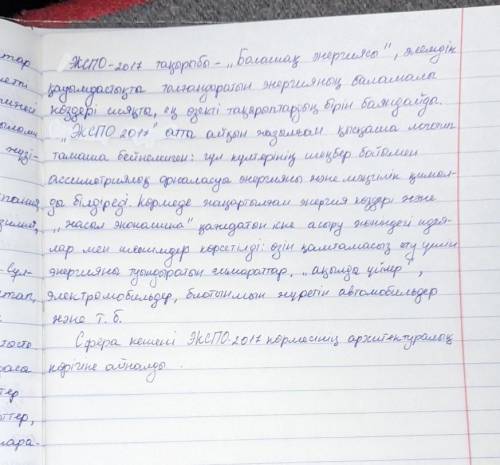 ЭКСПО-2017 тақырыбы - „Болашақ энергиясы", әлемдік
қауымдастықта толғандыратын энергияның баламалы
көздері сияқты, ең өзекті тақырыптардың бірін баяндайды.
„ЭКСПО 2017" атап айқын жазылған қысқаша логотип
тамаша бейнеленген: гүл күлтерінің шеңбер бойымен
ассиметриялық орналасуы энергияны және мәңгілік қимыл-
ды білдіреді. Көрмеде жаңартылған энергия көздері және
„жасыл экономика" қағидатын іске асыру жөніндегі идея-
лар мен шешімдер көрсетілді: өзін қамтамасыз ету үшін
энергияны туындыратын ғимараттар, „ақылды үйлер",
электромобильдер, биотынмын жүретін автомобильдер
және т. б.
Сфера кешені ЭКСПО-2017 көрмесінің архитектуралық
көрігіне айналды.
тар
метті
ылым
жүзі-
Сұл-
тап,
паста
раса
тер
ттер,
лара-